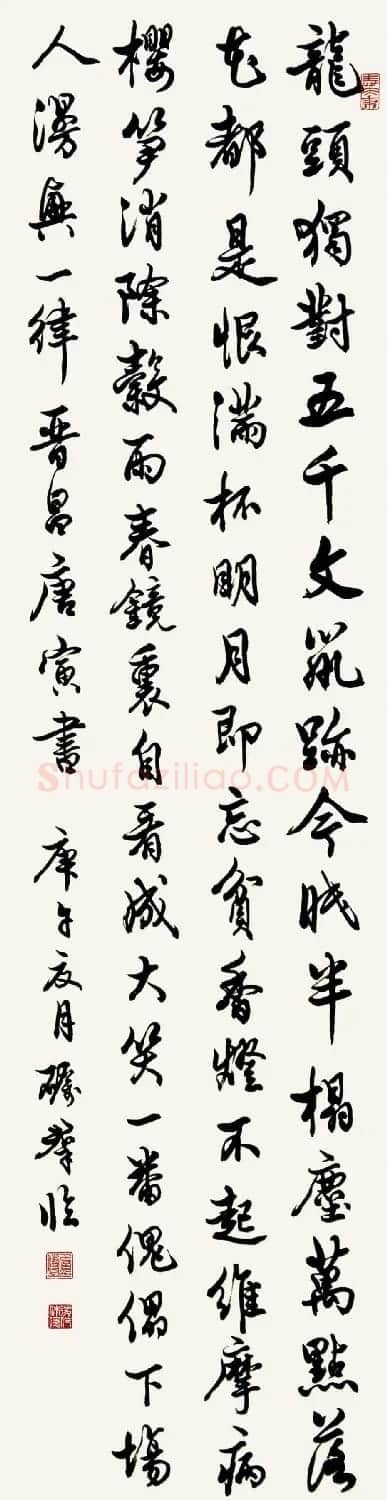 龍頭獨對五千文鼠跡今眠半榻塵萬點落
花都是恨滿杯明月即忘貧香燈不起維摩病
櫻笋消除穀雨春鏡裏自看成大笑一番傀儡下場
人漫興一律晉昌唐寅書
庚午夏月 臨
Shufaziliao.COM